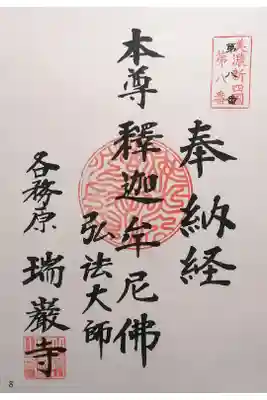 美濃新四国
第八番
奉納経
本尊 釋迦牟尼佛
弘法大師
各務原 瑞巖寺
8